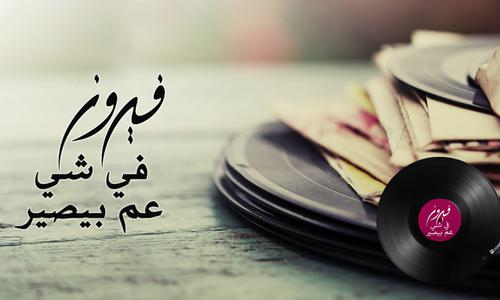 فيروز
في شي
عم بيصير
فيروز
في شي
عم بيصير